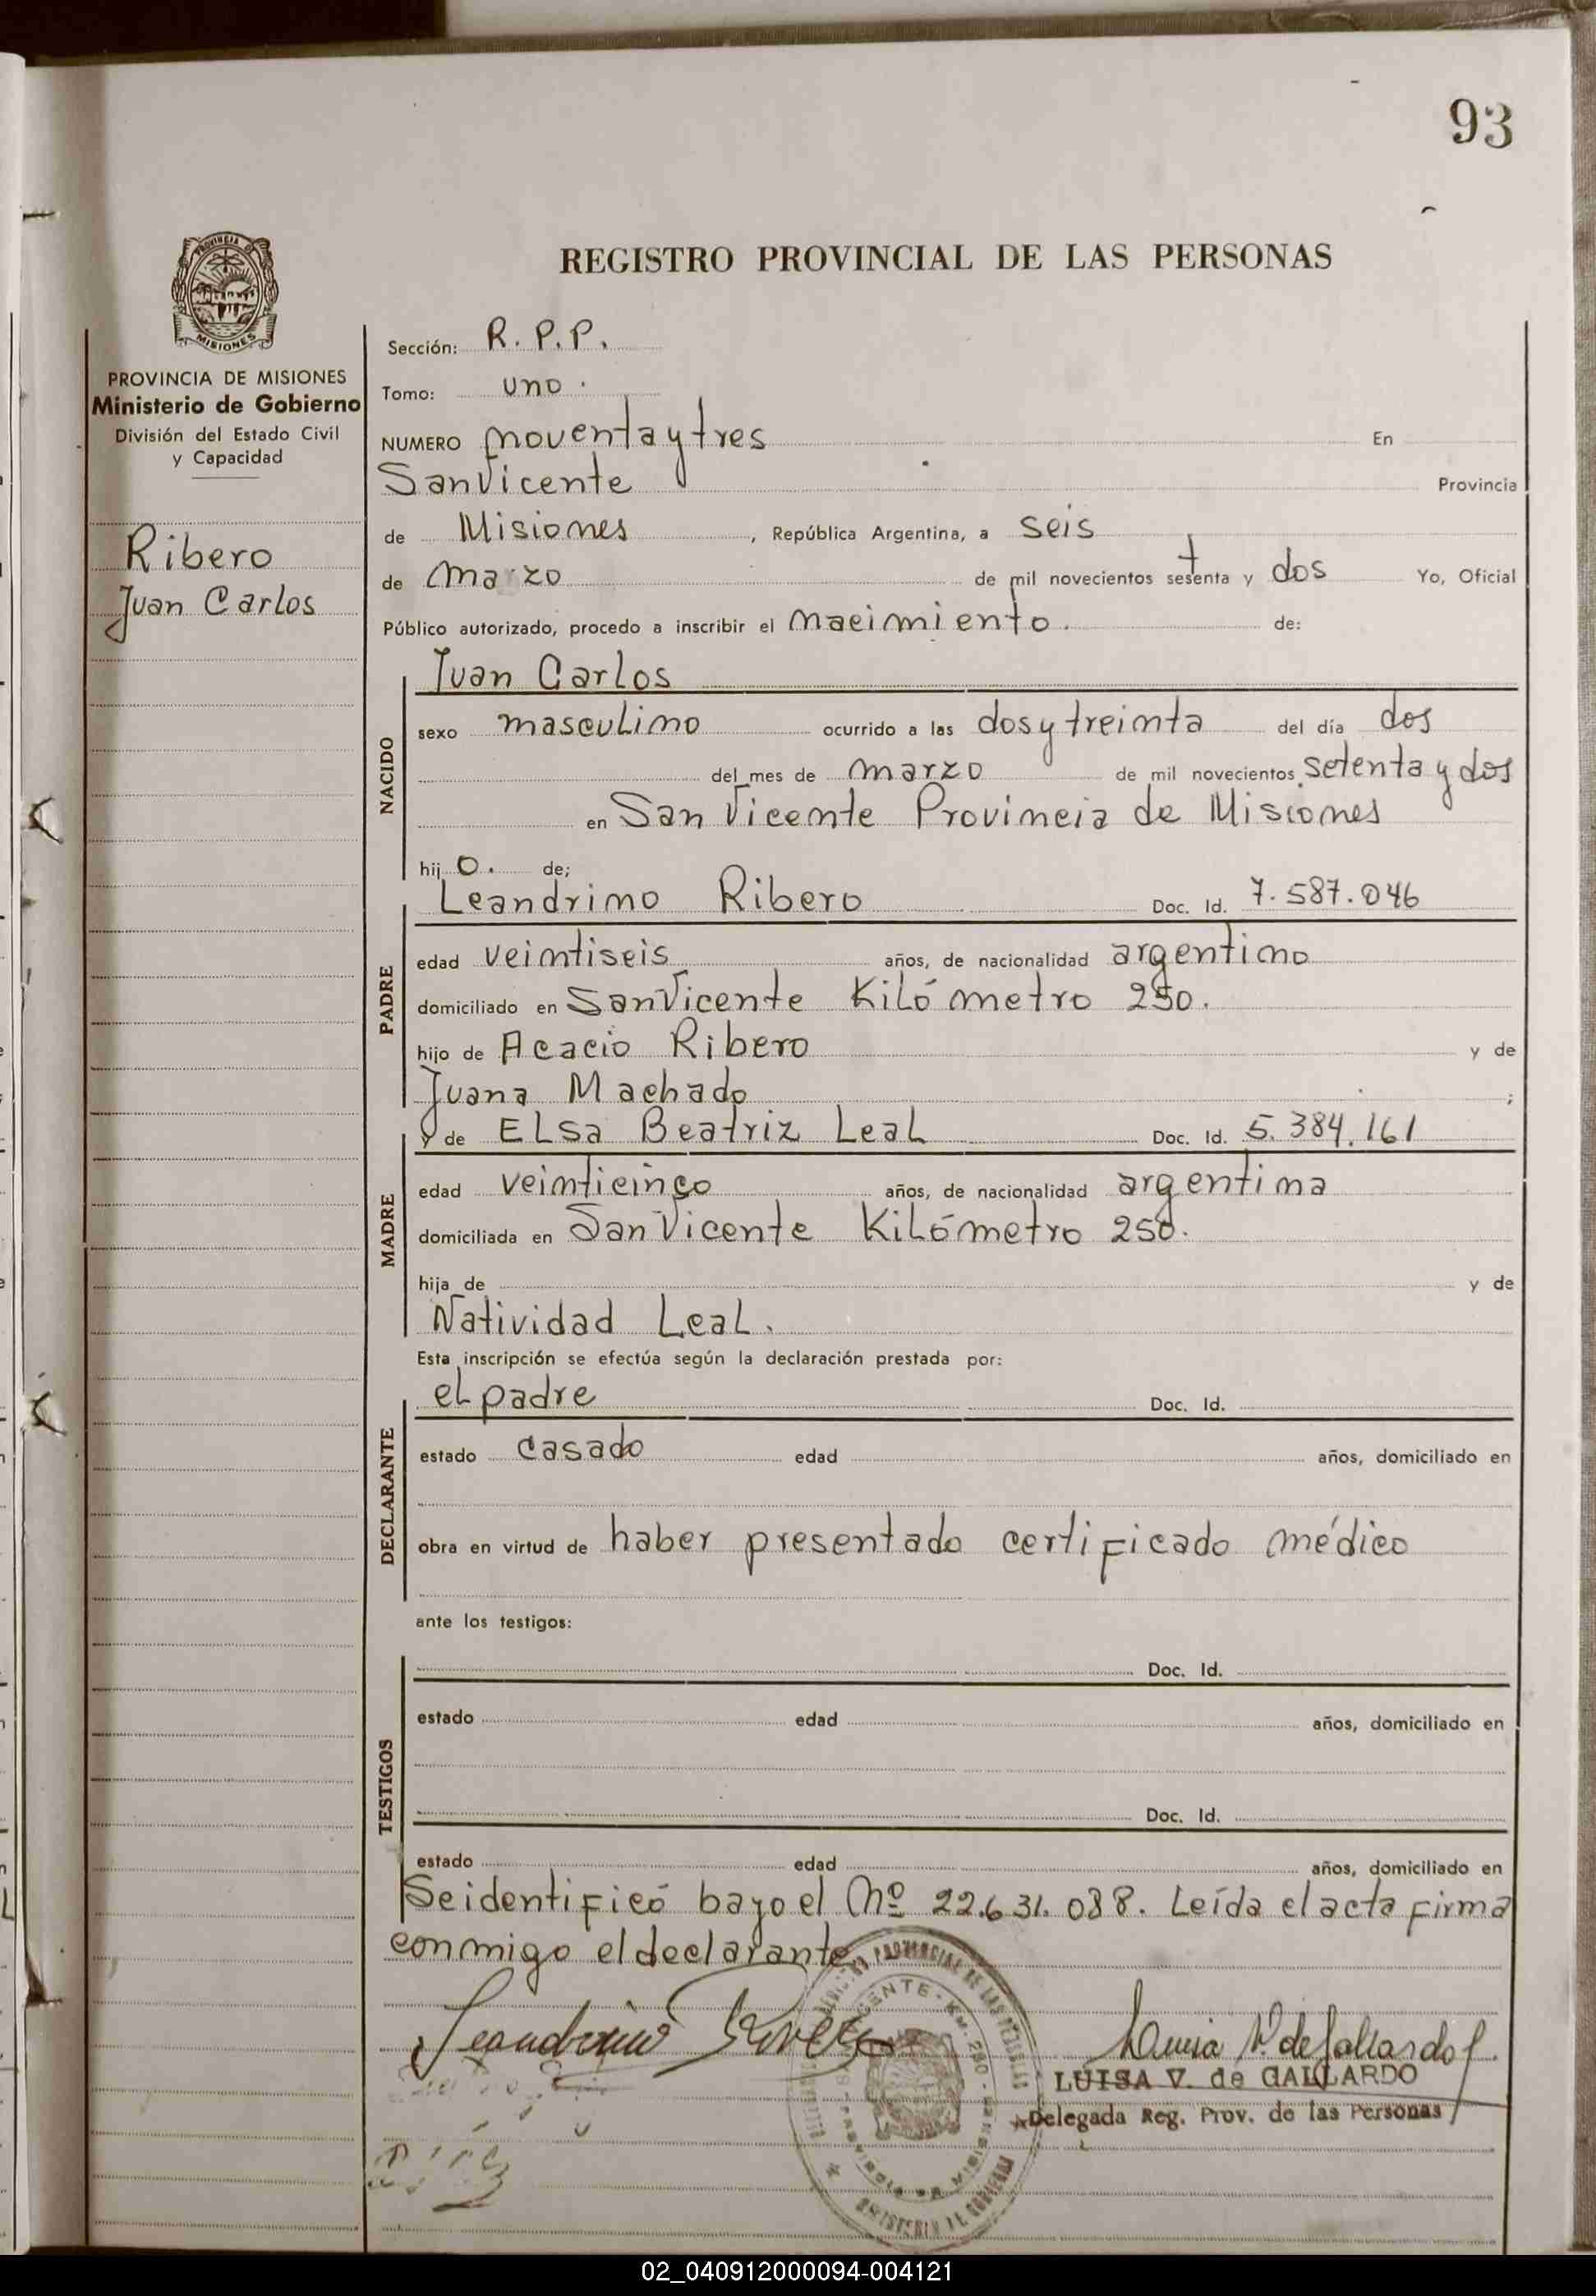 93
REGISTRO PROVINCIAL DE LAS PERSONAS
PROVINCIA DE
MISIONES
PROVINCIA DE MISIONES
Ministerio de Gobierno
División del Estado Civil
y Capacidad
Ribero
Juan Carlos
Sección: R. P. P.
Tomo: uno.
NUMERO noventa y tres En
San Vicente Provincia
de Misiones, República Argentina, a seis
de marzo de mil novecientos setenta y dos Yo, Oficial
Público autorizado, procedo a inscribir el nacimiento. de:
NACIDO
Juan Carlos
sexo masculino ocurrido a las dos y treinta del día dos
del mes de marzo de mil novecientos setenta y dos
en San Vicente Provincia de Misiones
hijo. de;
PADRE
Leandrino Ribero Doc. Id. 7.587.046
edad veintiseis años, de nacionalidad argentino
domiciliado en San Vicente Kilómetro 250.
hijo de Acacio Ribero y de
Juana Machado ;
MADRE
y de Elsa Beatriz Leal Doc. Id. 5.384.161
edad veinticinco años, de nacionalidad argentina
domiciliada en San Vicente Kilómetro 250.
hija de y de
Natividad Leal.
Esta inscripción se efectúa según la declaración prestada por:
DECLARANTE
el padre Doc. Id.
estado casado edad años, domiciliado en
obra en virtud de haber presentado certificado médico
ante los testigos:
TESTIGOS
Doc. Id.
estado edad años, domiciliado en
Doc. Id.
estado edad años, domiciliado en
Se identificó bajo el Nº 22.631.088. Leída el acta firma
conmigo el declarante
Leandrino Rivero
Luisa V. de Gallardo
LUISA V. de GALLARDO
Delegada Reg. Prov. de las Personas
PROVINCIAL DE LAS PERSONAS
MINISTERIO DE GOBIERNO
02_040912000094-004121